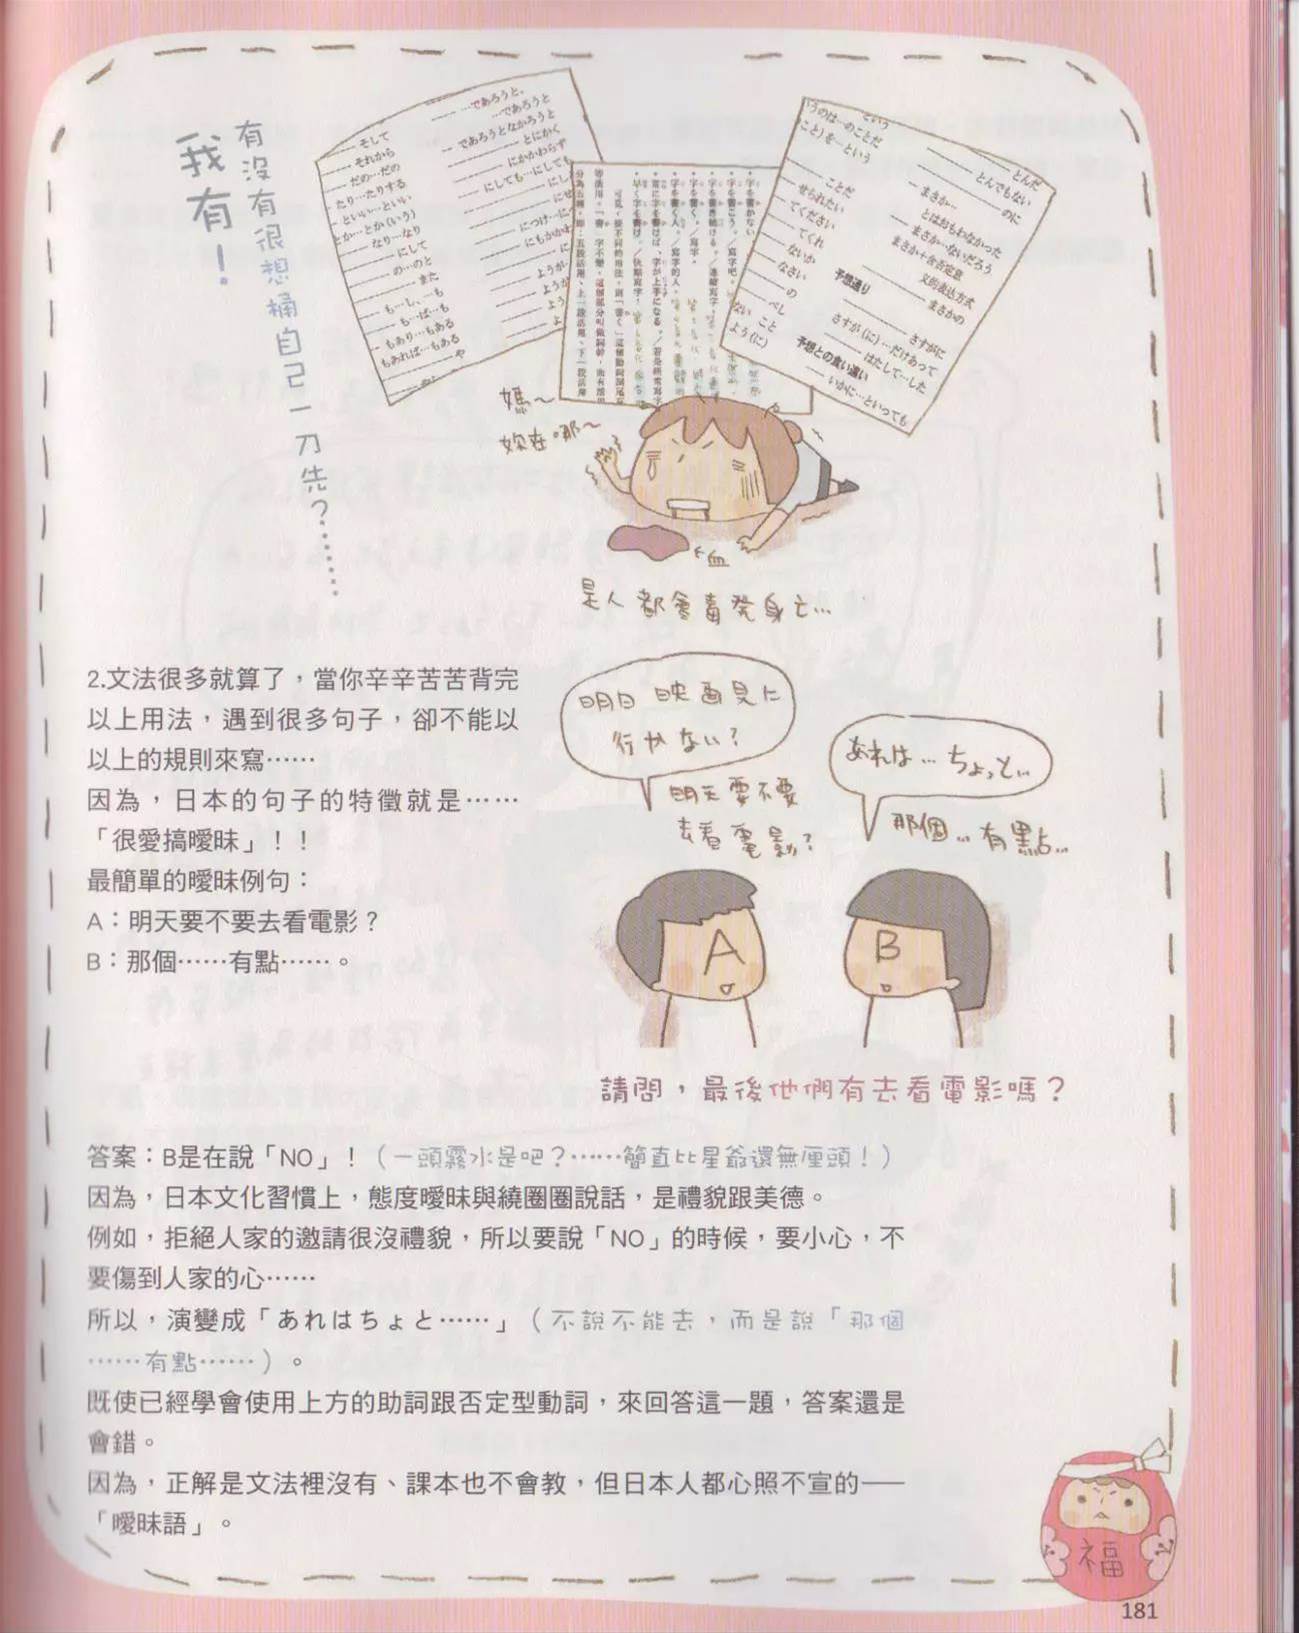 有沒有很想桶自己一刀先？……
我有！
…であろうと、
…であろうと
であろうとなかろうと
とにかく
にかかわらず
にしても…にしても
そして
それから
だの…だの
たり…たりする
といい…といい
とか…とか(いう)
なり…なり
にして
の…のと
また
も…し、…も
も…ば…も
もあり…もある
もあれば…もある
や
という
うのは…のことだ
こと)を…という
ことだ
せられたい
てください
てくれ
ないか
なさい
の
べし
ない こと
よう(に)
とんだ
とんでもない
のに
まさか…
とはおもわなかった
まさか…ないだろう
まさか+含否定意
义的表达方式
まさかの
予想通り
さすがに
さすが(に)…だけあって
はたして…した
予想との食い違い
いかに…といっても
媽～
妳在哪～
血
是人都會毒發身亡…
2.文法很多就算了，當你辛辛苦苦背完
以上用法，遇到很多句子，卻不能以
以上的規則來寫……
因為，日本的句子的特徵就是……
「很愛搞曖昧」！！
最簡單的曖昧例句：
A：明天要不要去看電影？
B：那個……有點……。
明日 映画見に
行かない？
明天要不要
去看電影？
あれは…ちょっと…
那個…有點…
A
B
請問，最後他們有去看電影嗎？
答案：B是在說「NO」！（一頭霧水是吧？……簡直比星爺還無厘頭！）
因為，日本文化習慣上，態度曖昧與繞圈圈說話，是禮貌跟美德。
例如，拒絕人家的邀請很沒禮貌，所以要說「NO」的時候，要小心，不
要傷到人家的心……
所以，演變成「あれはちょと……」（不說不能去，而是說「那個
……有點……）。
既使已經學會使用上方的助詞跟否定型動詞，來回答這一題，答案還是
會錯。
因為，正解是文法裡沒有、課本也不會教，但日本人都心照不宣的──
「曖昧語」。
福
181